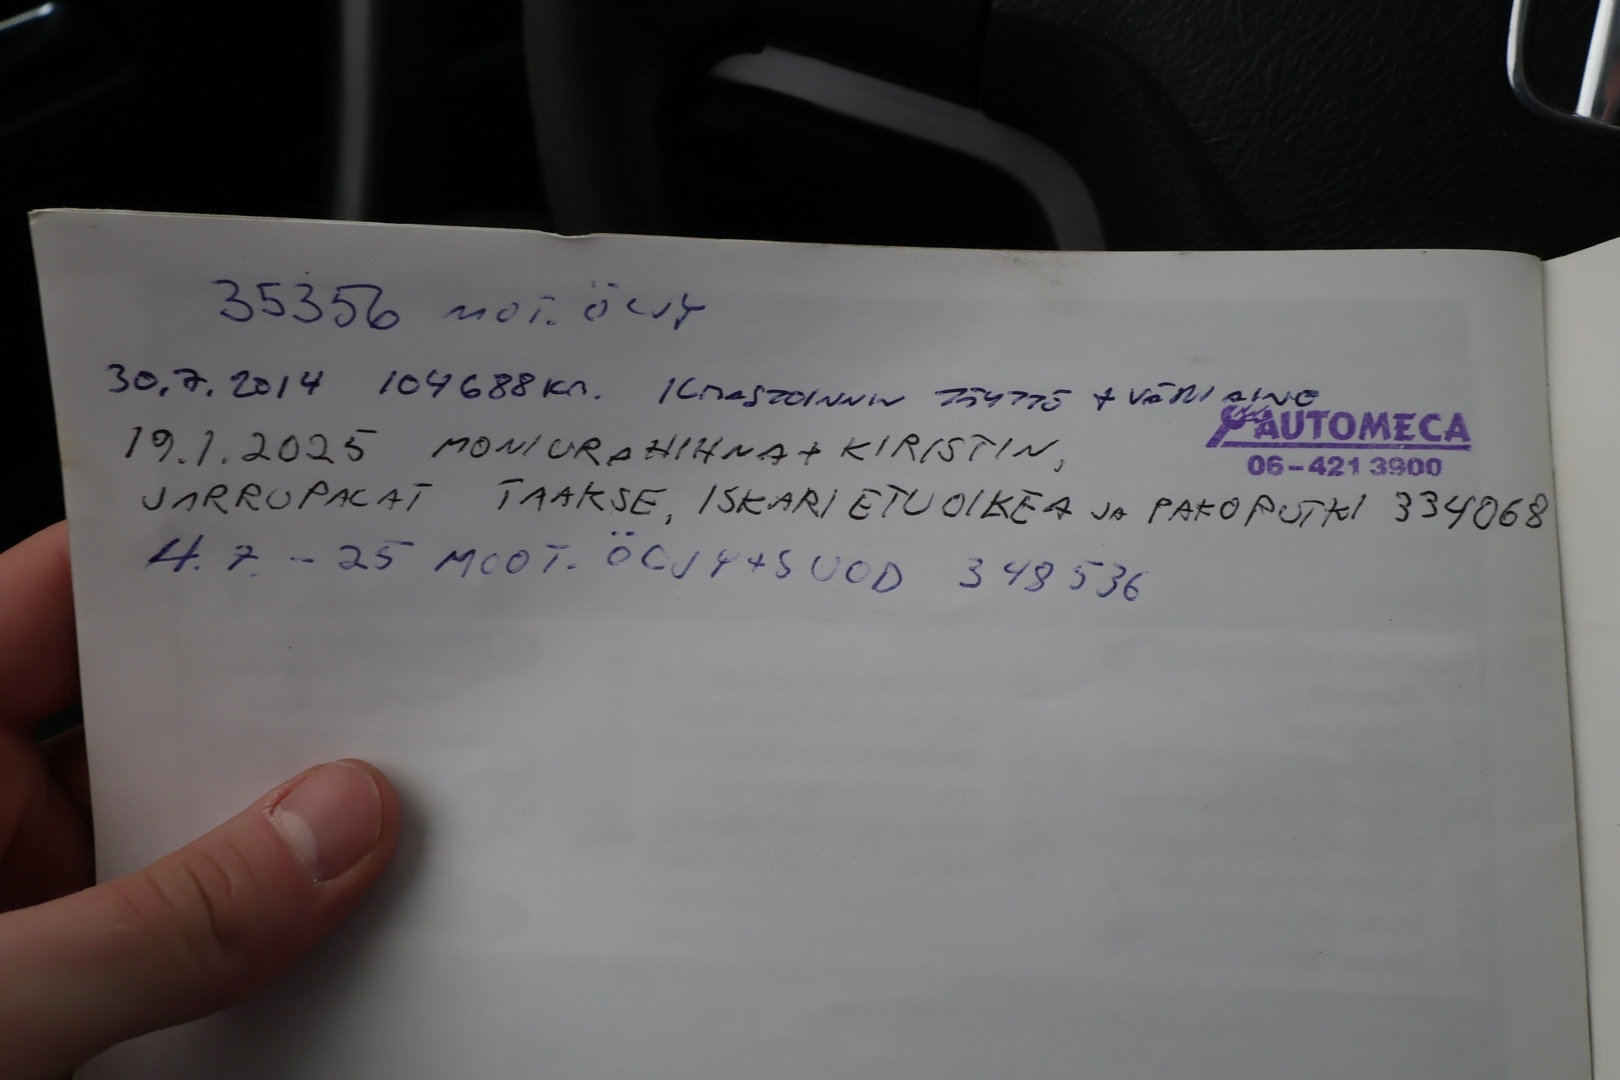 35356 MOT. ÖLJY
30.7.2014 104688 KM. ILMASTOINNIN TÄYTTÖ + VÄRIAINE
AUTOMECA
06-421 3900
19.1.2025 MONIURAHIHNA + KIRISTIN,
JARRUPALAT TAAKSE, ISKARI ETUOIKEA JA PAKOPUTKI 334068
4.7.-25 MOOT. ÖLJY+SUOD 348536